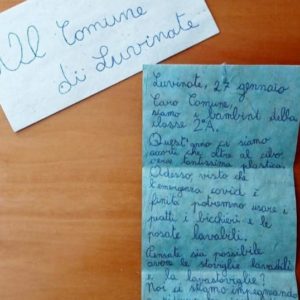 Al Comune
di Luvinate
Luvinate, 27 gennaio
Caro Comune,
siamo i bambini della
classe 2ªA.
Quest'anno ci siamo
accorti che oltre al cibo
c'era tantissima plastica.
Adesso, visto che
l'emergenza covid è
finita potremmo usare i
piatti i bicchieri e le
posate lavabili.
Pensate sia possibile
avere le stoviglie lavabili
e la lavastoviglie?
Noi ci stiamo impegnando